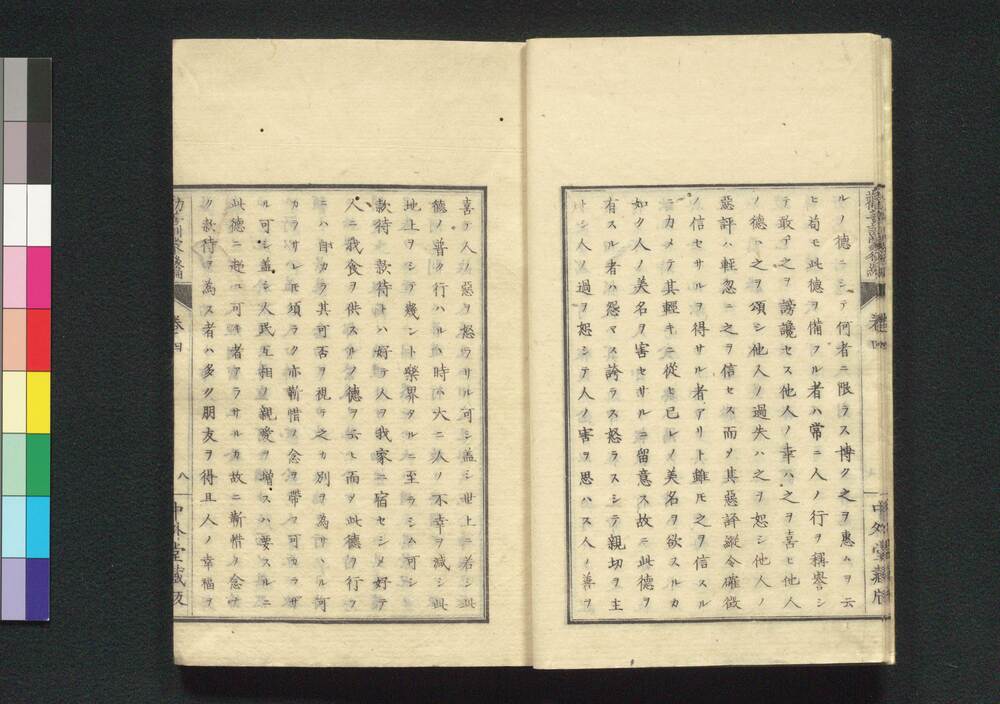 ルノ德ニシテ何者ニ限ラス博ク之ヲ惠ムヲ云
ヒ苟モ此德ヲ備フル者ハ常ニ人ノ行ヲ稱譽シ
テ敢テ之ヲ謗讒セス他人ノ幸ハ之ヲ喜ヒ他人
ノ德ハ之ヲ頌シ他人ノ過失ハ之ヲ恕シ他人ノ
惡評ハ輕忽ニ之ヲ信セス而メ其惡評縱令確徴
ノ信セサルヲ得サル者アリト雖𪜈之ヲ信スル
ニカメテ其輕キニ從ヒ已レノ美名ヲ欲スルカ
如ク人ノ美名ヲ害セサルニ留意ス故ニ此德ヲ
有スル者ハ怨マス誇ラス怒ラスシテ親切ヲ主
トシ人ノ過ヲ恕シテ人ノ害ヲ思ハス人ノ善ヲ
中外堂藏版
喜テ人ノ惡ヲ怒ラサル可シ盖シ世上ニ若シ此
德ノ普ク行ハルヽ時ハ大ニ人ノ不幸ヲ減シ此
地上ヲシテ幾ント樂界タルニ至ラシム可シ
款待 款待トハ好テ人ヲ我家ニ宿セシメ好テ
人ニ我食ヲ供スルノ德ヲ云ヒ而メ此德ヲ行フ
ニハ自カラ其可否ヲ視テ之カ別ヲ為サヽル可
カラサレ𪜈須ラク亦靳惜ノ念ヲ帶フ可カラサ
ル可シ盖シ人民互相ノ親愛ヲ増スハ要スルニ
此德ニ赴ユ可キ者アラサルカ故ニ靳惜ノ念ナ
ク款待ヲ為ス者ハ多ク朋友ヲ得且人ノ幸福ヲ
卷四
八
中外堂藏版